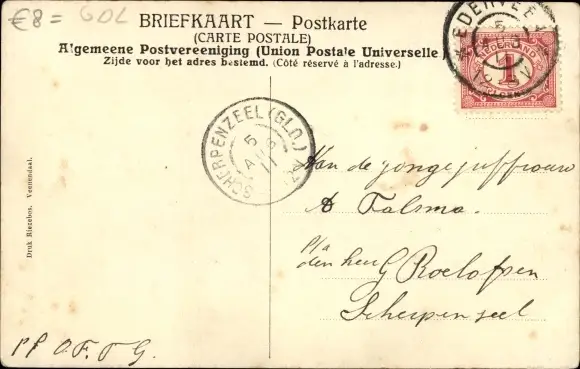 €8 = GDL
BRIEFKAART — Postkarte
(CARTE POSTALE)
Algemeene Postvereeniging (Union Postale Universelle)
Zijde voor het adres bestemd. (Côté réservé à l'adresse.)
NEDERLAND
1
CENT
SCHERPENZEEL (GLD.)
5
AUG
11
Van de jongejuffrouw
A Talsma.
p/a
den heer G Roelofsen
Scherpenzeel
Druk Riezebos, Veenendaal.